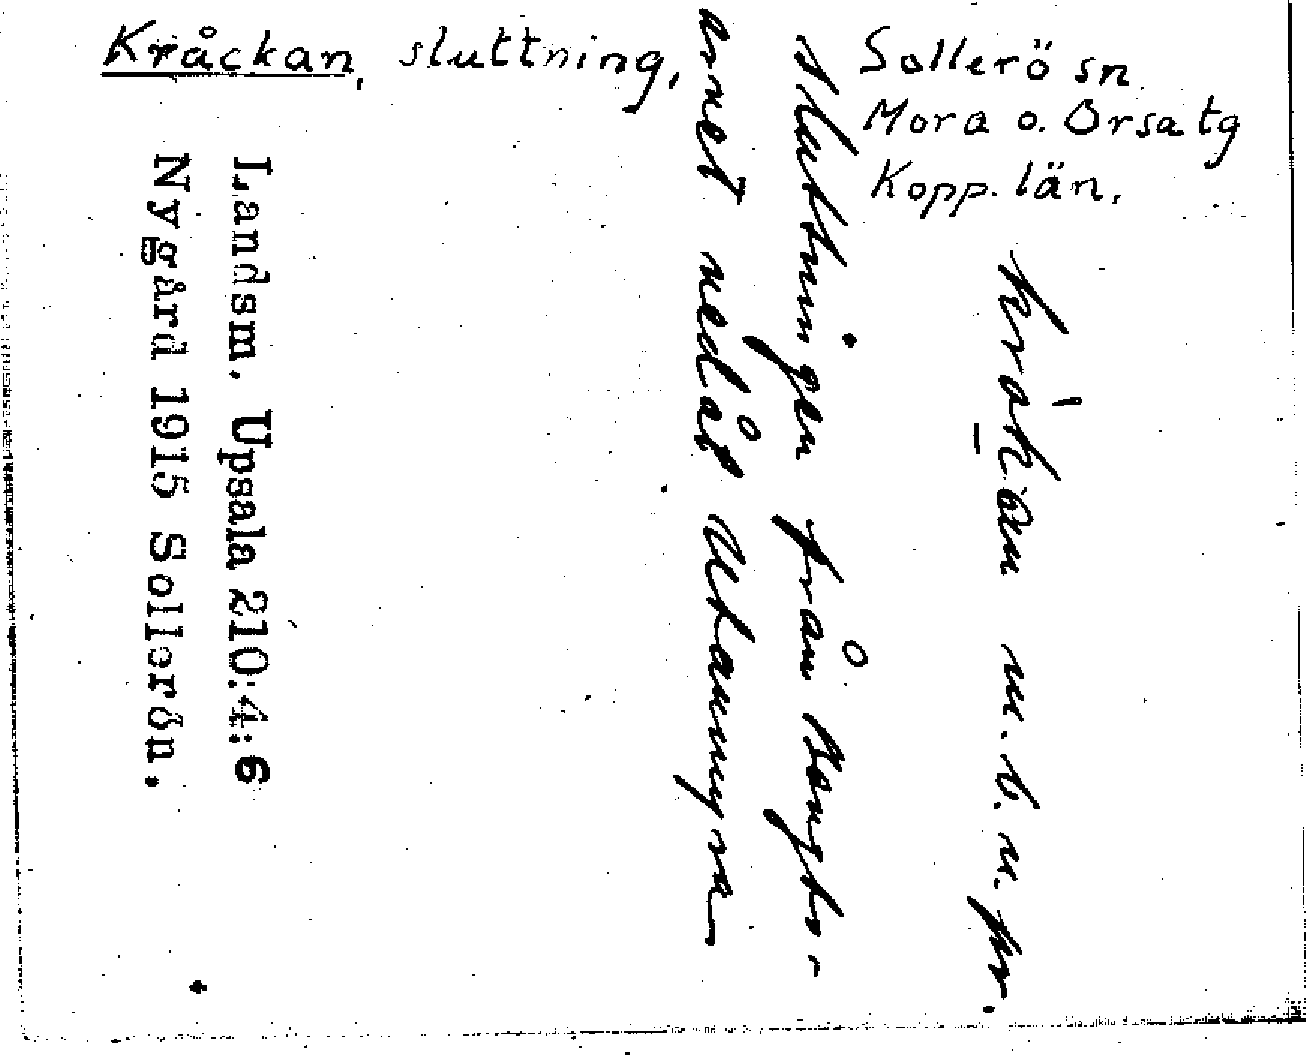 Kråckan, sluttning,
Sollerö sn
Mora o. Orsa tg
Kopp. län.
m.b.n.pr.
sluttningen från
arvet nedåt Utanmyra
Landsm. Upsala 210:4:6
Nygård 1915 Sollerön.